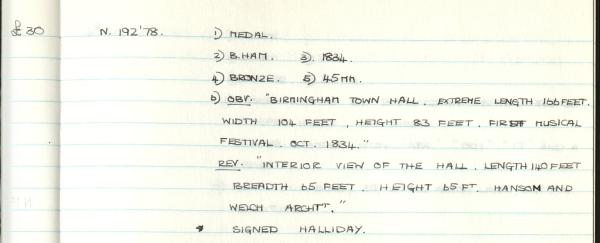 £30 N. 192'78. 1) MEDAL.
2) B.HAM. 3). 1834.
4) BRONZE. 5) 45MM.
6) OBV. "BIRMINGHAM TOWN HALL. EXTREME LENGTH 166 FEET.
WIDTH 104 FEET, HEIGHT 83 FEET. FIRST MUSICAL
FESTIVAL. OCT. 1834."
REV. "INTERIOR VIEW OF THE HALL. LENGTH 140 FEET
BREADTH 65 FEET. HEIGHT 65 FT. HANSOM AND
WELCH ARCHTT."
* SIGNED HALLIDAY.